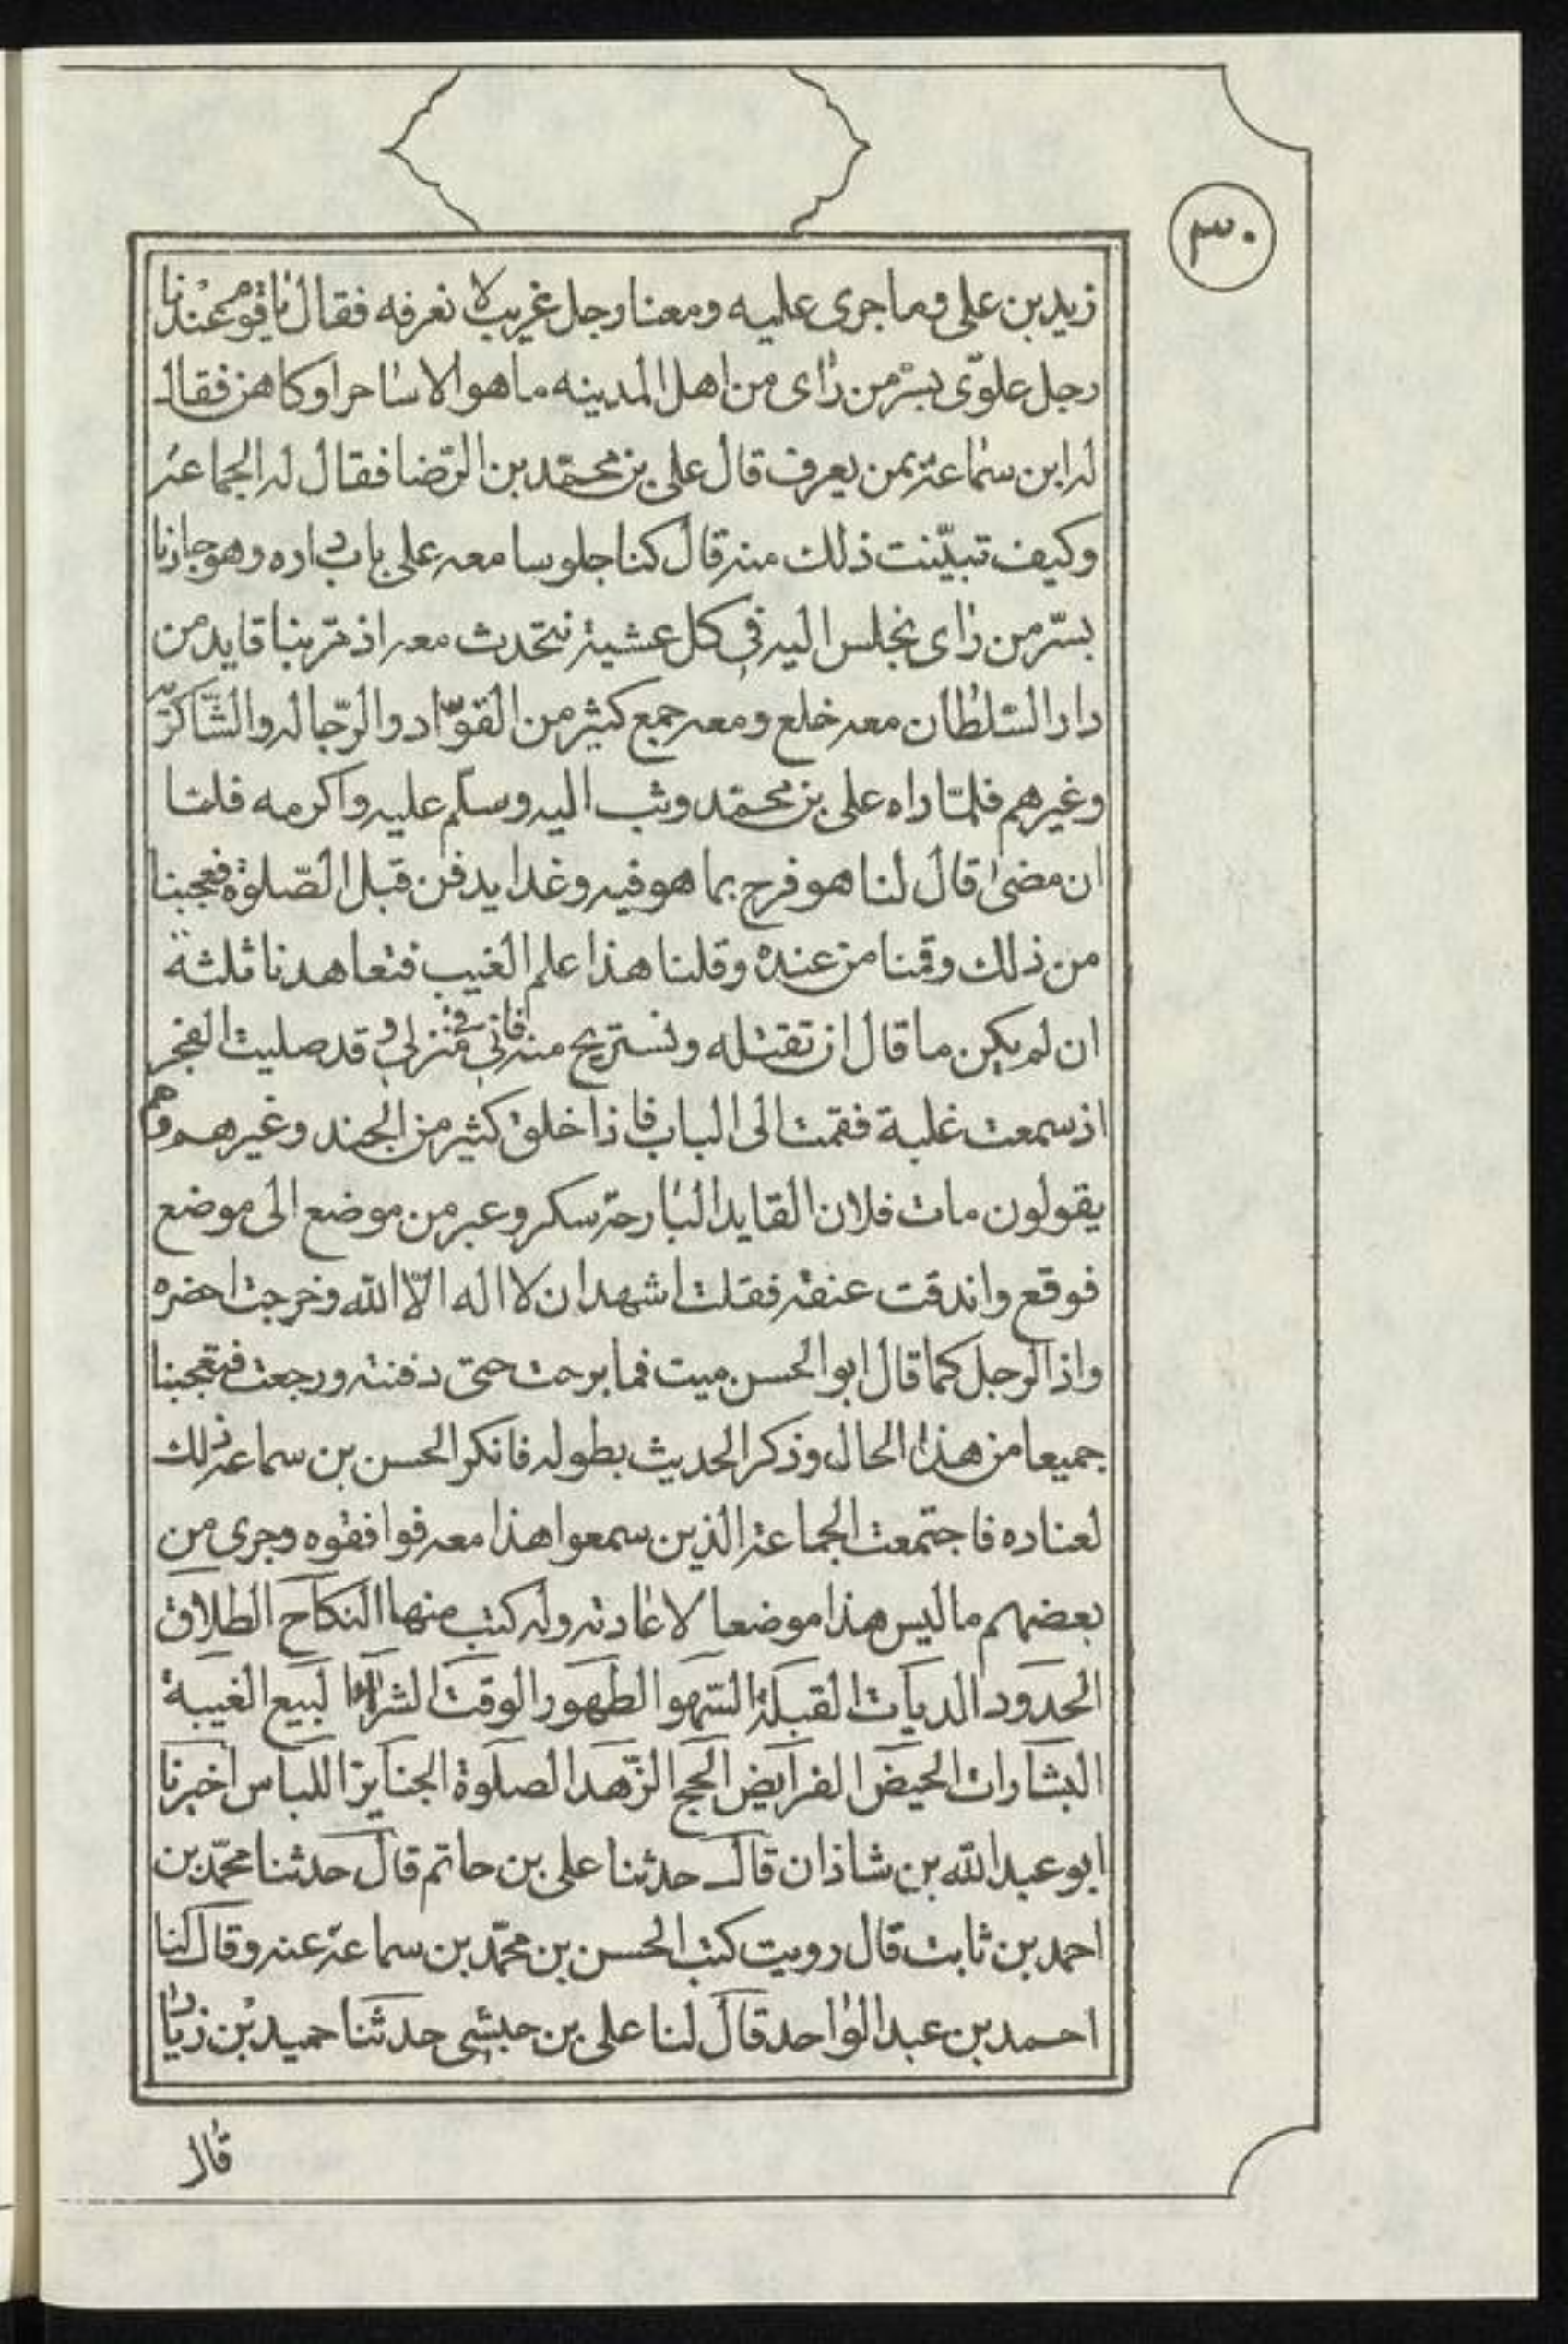 ٣٠
زيد بن على وما جرى عليه ومعنا رجل غريب لا نعرفه فقال يا قوم عندنا
رجل علوىّ بسرّ من راى من اهل المدينه ما هو الا ساحرا وكاهن فقال
له ابن سماعة بمن يعرف قال على بن محمّد بن الرّضا فقال له الجماعة
وكيف تبيّنت ذلك منه قال كنا جلوسا معه على باب داره وهو جارنا
بسرّ من راى نجلس اليه فى كل عشية نتحدث معه اذ مرّ بنا قايد من
دار السّلطان معه خلع ومعه جمع كثير من القوّاد والرّجاله والشّاكريّه
وغيرهم فلمّا راه على بن محمّد وثب اليه وسلّم عليه واكرمه فلمّا
ان مضى قال لنا هو فرح بما هو فيه وغدا يدفن قبل الصّلوة فعجبنا
من ذلك وقمنا من عنده وقلنا هذا علم الغيب فتعاهدنا ثلثة
ان لم يكن ما قال ان نقتله ونستريح منه فانى فى منزلى وقد صليت الفجر
اذ سمعت غلبة فقمت الى الباب فاذا خلق كثير من الجند وغيرهم وهم
يقولون مات فلان القايد البارحة سكر وعبر من موضع الى موضع
فوقع واندقت عنقه فقلت اشهد ان لا اله الّا الله وخرجت احضره
واذا الرجل كما قال ابو الحسن ميت فما برحت حتى دفنته ورجعت فتعجبنا
جميعا من هذا الحال وذكر الحديث بطوله فانكر الحسن بن سماعة ذلك
لعناده فاجتمعت الجماعة الذين سمعوا هذا معه فوافقوه وجرى من
بعضهم ما ليس هذا موضعا لاعادته وله كتب منها النكاح الطلاق
الحدود الديات القبلة السّهو الطهور الوقت الشرا البيع الغيبة
البشارات الحيض الفرايض الحج الزّهد الصلوة الجنايز اللباس اخبرنا
ابو عبد الله بن شاذان قال حدثنا على بن حاتم قال حدثنا محمّد بن
احمد بن ثابت قال رويت كتب الحسن بن محمّد بن سماعة عنه وقال لنا
احمد بن عبد الواحد قال لنا على بن حبشى حدثنا حميد بن زياد
قال